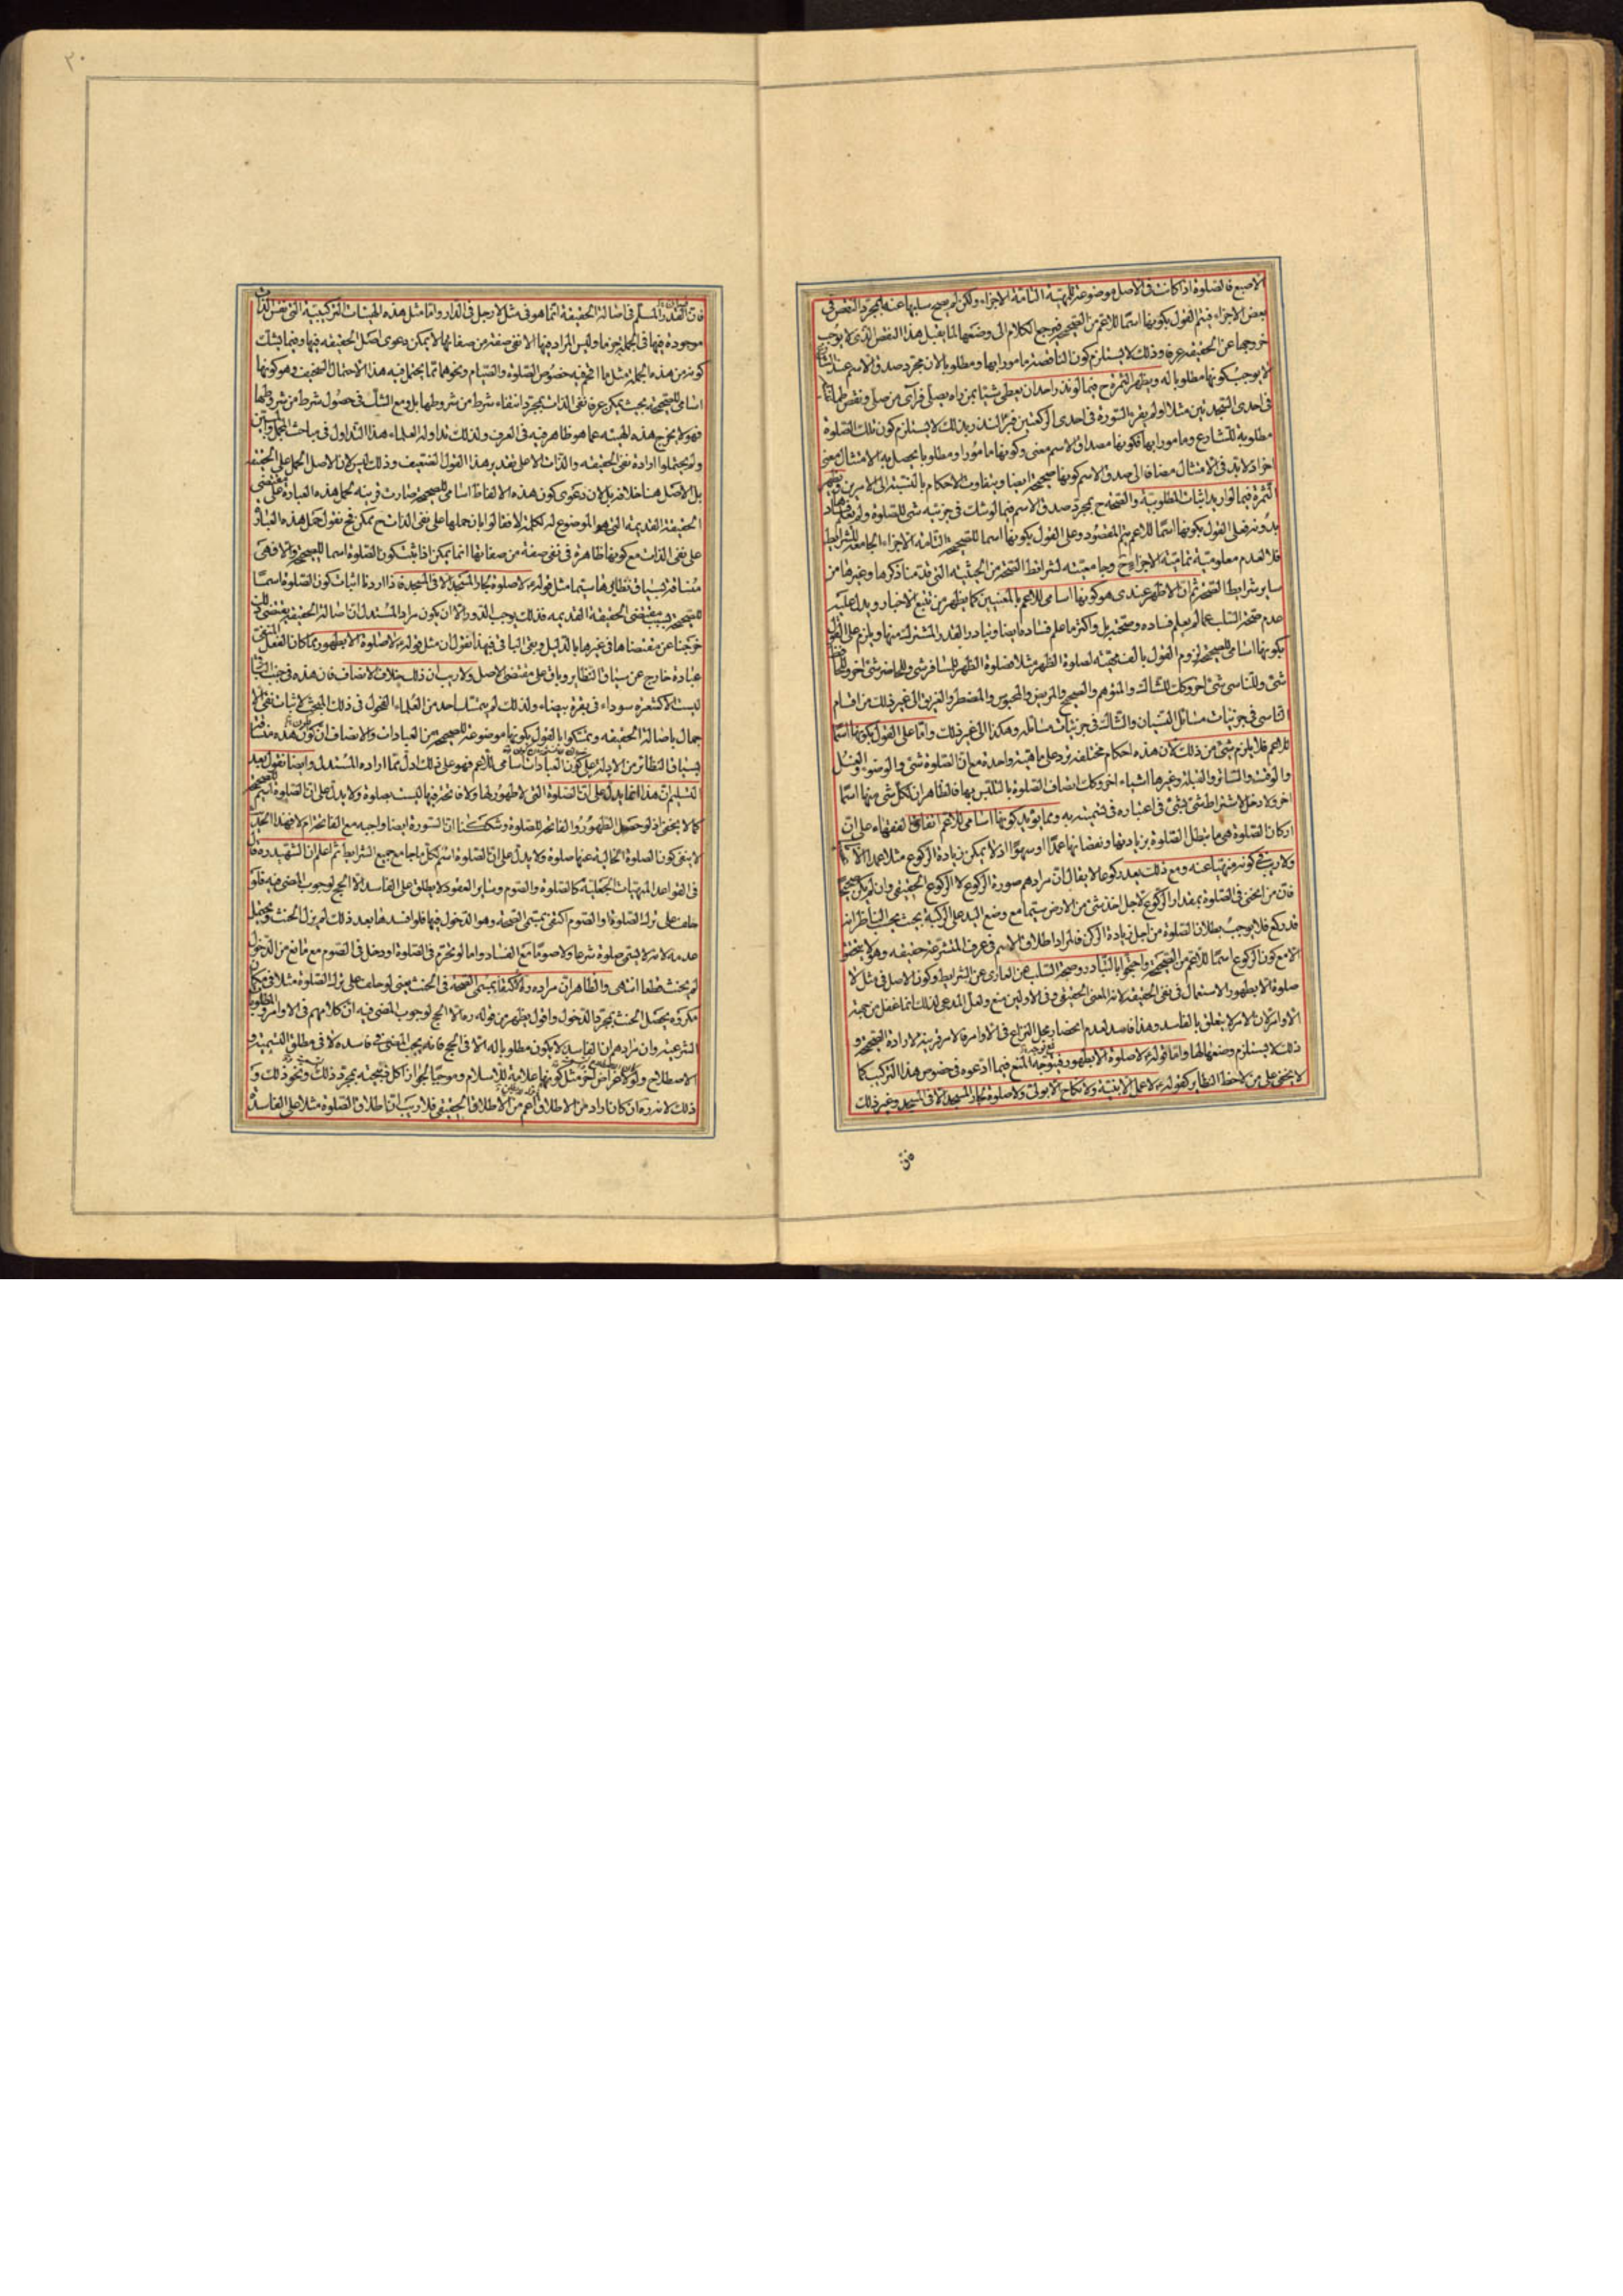 الاصبع فالصلوة اذا كانت فى الاصل موضوعة للهيئة التامة الاجزاء ولكن لم يصح سلبها عنه بمجرد النقص فى
بعض الاجزاء فيتم القول بكونها اسما للاعم من الصحيحة فيرجع الكلام الى وضعها لما يقبل هذا النقص الذى لا يوجب
خروجها عن الحقيقة عرفا وذلك لا يستلزم كون الناقصة مامورا بها ومطلوبة لان مجرد صدق الاسم عند الشارع
لا يوجب كونها مطلوبا له ويظهر الثمرة ح فيما لو نذر احد ان يعطى شيئا بمن راه يصلى فرآى من صلى ونقص طمانينة
فى احدى السجدتين مثلا او لم يقرء السورة فى احدى الركعتين فبر النذر بذلك لا يستلزم كون تلك الصلوة
مطلوبة للشارع ومامورا بها فكونها مصداق الاسم معنى وكونها مامورا ومطلوبا يحصل به الامتثال معنى
اخر اذ لا بد فى الامتثال مضافا الى صدق الاسم كونها صحيحة ايضا ويتفاوت الاحكام بالنسبة الى الامرين ويظهر
الثمرة فيما لو اريد اثبات المطلوبية والصحة ح بمجرد صدق الاسم فيما لو شك فى جزئية شى للصلوة ولم يعلم فسادها
بدونه فعلى القول بكونها اسما للاعم يتم المقصود وعلى القول بكونها اسما للصحيحة التامة الاجزاء الجامعة للشرايط
فلا لعدم معلومية تمامية الاجزاء ح وجامعيته لشرائط الصحة من الحيثية التى قدمنا ذكرها وغيرها من
ساير شرايط الصحة ثم ان الاظهر عندى هو كونها اسامى للاعم بالمعنيين كما يظهر من تتبع الاخبار ويدل عليه
عدم صحة السلب عما لم يعلم فساده وصحته بل واكثر ما علم فساده ايضا وتبادر القدر المشترك منها ويلزم على القول
بكونها اسامى للصحيحة لزوم القول بالف مهية لصلوة الظهر مثلا فصلوة الظهر للمسافر شى وللحاضر شى اخر وللحافظ
شى وللناسى شى اخر وكك للشاك والمتوهم والصحيح والمريض والمحبوس والمضطر والغريق الى غير ذلك من اقسام
الناسى فى جزئيات مسائل النسيان والشاك فى جزئيات مسائله وهكذا الى غير ذلك واما على القول بكونها اسما
للاعم فلا يلزم شى من ذلك لان هذه احكام مختلفة ترد على ماهية واحدة مع ان الصلوة شى والوضوء والغسل
والوقت والساتر والقبلة وغيرها اشياء اخر وكك اتصاف الصلوة بالتلبس بها فالظاهر ان لكل شى منها اسما
اخر ولا دخل لاشتراط شى بشى فى اعتباره فى تسميته به ومما يؤيد كونها اسامى للاعم اتفاق الفقهاء على ان
اركان الصلوة هى ما يبطل الصلوة بزيادتها ونقصانها عمدا او سهوا اذ لا يمكن زيادة الركوع مثلا عمدا الا
ولا ريب فى كونه منهيا عنه ومع ذلك يعد ركوعا لا يقال ان مرادهم صورة الركوع لا الركوع الحقيقى وان لم يكن صحيحا
فان من انحنى فى الصلوة بمقدار الركوع لاجل اخذ شى من الارض سيما مع وضع اليد على الركبة بحيث يحسب الناظر انه
قد ركع فلا يوجب بطلان الصلوة من اجل زيادة الركن فالمراد اطلاق الاسم فى عرف المتشرعة حقيقة وهو لا يتحقق
الا مع كون الركوع اسما للاعم من الصحيحة واحتجوا بالتبادر وصحة السلب عن العارى عن الشرايط وكون الاصل فى مثل لا
صلوة الا بطهور الاستعمال فى نفى الحقيقة لانه المعنى الحقيقى وفى الاولين منع ولعل المدعى لذلك انما غفل من جهة
الاوامر لان الامر لا يتعلق بالفاسد وهذا فاسد لعدم انحصار محل النزاع فى الاوامر فالامر قرينة لارادة الصحيحة و
ذلك لا يستلزم وضعها لها واما قوله ع لا صلوة الا بطهور فيتوجه المنع فيما ادعوه فى خصوص هذا التركيب كما
لا يخفى على من لاحظ النظاير كقوله ع لا عمل الا بنية ولا نكاح الا بولى ولا صلوة لجار المسجد الا فى المسجد وغير ذلك
٢٠
فان القدر المسلم فى اصالة الحقيقة انما هو فى مثل لا رجل فى الدار واما مثل هذه الهيئات التركيبية التى نفس الذات
موجودة فيها فى الجملة جزما وليس المراد فيها الا نفى صفة من صفاتها لا يمكن دعوى اصل الحقيقة فيها وفيما يشك
كونه من هذه الجملة مثل ما نحن فيه خصوص الصلوة والصيام ونحوهما مما يحتمل فيه هذا الاحتمال السخيف وهو كونها
اسامى للصحيحة بحيث يمكن عرفا نفى الذات بمجرد انتفاء شرط من شروطها بل ومع الشك فى حصول شرط من شروطها
فهو لا يخرج هذه الهيئة عما هو ظاهر فيه فى العرف ولذلك تداوله العلماء هذا التداول فى مباحث المجمل والمبين
ولم يحتملوا ارادة نفى الحقيقة والذات الا على تقدير هذا القول الضعيف وذلك ليس لان الاصل الحمل على الحقيقة
بل الاصل هنا خلافه بل لان دعوى كون هذه الالفاظ اسامى للصحيحة صارت قرينة لحمل هذه العبارة على مقتضى
الحقيقة القديمة التى هو الموضوع له لكلمة لا فقالوا بان حملها على نفى الذات ح ممكن فح نقول حمل هذه العبارة
على نفى الذات مع كونها ظاهرة فى نفى صفة من صفاتها انما يمكن اذا ثبت كون الصلوة اسما للصحيحة والا فهى
مساقة بسياق نظايرها سيما مثل قوله ع لا صلوة لجار المسجد الا فى المسجد فاذا اردنا اثبات كون الصلوة اسما
للصحيحة بسبب مقتضى الحقيقة القديمة فذلك يوجب الدور الا ان يكون مراد المستدل ان اصالة الحقيقة يقتضى ذلك
خرجنا عن مقتضاها فى غيرها بالدليل وبقى الباقى فبهذا نقول ان مثل قوله ع لا صلوة الا بطهور مما كان الفعل المنفى
عبادة خارج عن سياق النظاير وباق على مقتضى الاصل ولا ريب ان ذلك خلاف الانصاف فان هذه فى جنب الباقى
ليست الا كشعرة سوداء فى بقرة بيضاء ولذلك لم يتمسك احد من العلماء الفحول فى ذلك المبحث لاثبات نفى الا
جمال باصالة الحقيقة وتمسكوا بالقول بكونها موضوعة للصحيحة من العبادات والانصاف ان كون هذه مساقة
بسياق النظائر من الادلة على كون العبادات اسامى للاعم فهو على ذلك ادل مما اراده المستدل وايضا نقول بعد
التسليم ان هذا انما يدل على ان الصلوة التى لا طهور لها ولا فاتحة فيها ليست بصلوة ولا يدل على ان الصلوة اسم للصحيحة
كما لا يخفى اذ لو حصل الطهور والفاتحة للصلوة وشككنا ان السورة ايضا واجبة مع الفاتحة ام لا فهذا الحديث
لا ينفى كون الصلوة الخالية عنها صلوة ولا يدل على ان الصلوة اسم لكل ما جامع جميع الشرايط ثم اعلم ان الشهيد ره قال
فى القواعد المهيات الجعلية كالصلوة والصوم وساير العقود لا يطلق على الفاسد الا الحج لوجوب المضى فيه فلو
حلف على ترك الصلوة او الصوم اكتفى بمسمى الصحة وهو الدخول فيها فلو افسدها بعد ذلك لم يزل الحنث ويحتمل
عدمه لانه لا يسمى صلوة شرعا ولا صوما مع الفساد واما لو تحرم فى الصلوة او دخل فى الصوم مع مانع من الدخول
لم يحنث قطعا انتهى والظاهر ان مراده ره الاكتفاء بمسمى الصحة فى الحنث يعنى لو حلف على ترك الصلوة مثلا فى مكان
مكروه يحصل الحنث بمجرد الدخول واقول يظهر من قوله ره الا الحج لوجوب المضى فيه ان كلامهم فى الاوامر والمطلوبات
الشرعية وان مرادهم ان الفاسد لا يكون مطلوبا له الا فى الحج فانه يجب المضى فى فاسده لا فى مطلق التسمية و
الاصطلاح ولو لاغراض اخر مثل كونها علامة للاسلام وموجبا لجواز اكل ذبيحته بمجرد ذلك ونحو ذلك و
ذلك لانه ره ان كان اراد من الاطلاق اعم من الاطلاق الحقيقى فلا ريب ان اطلاق الصلوة مثلا على الفاسدة